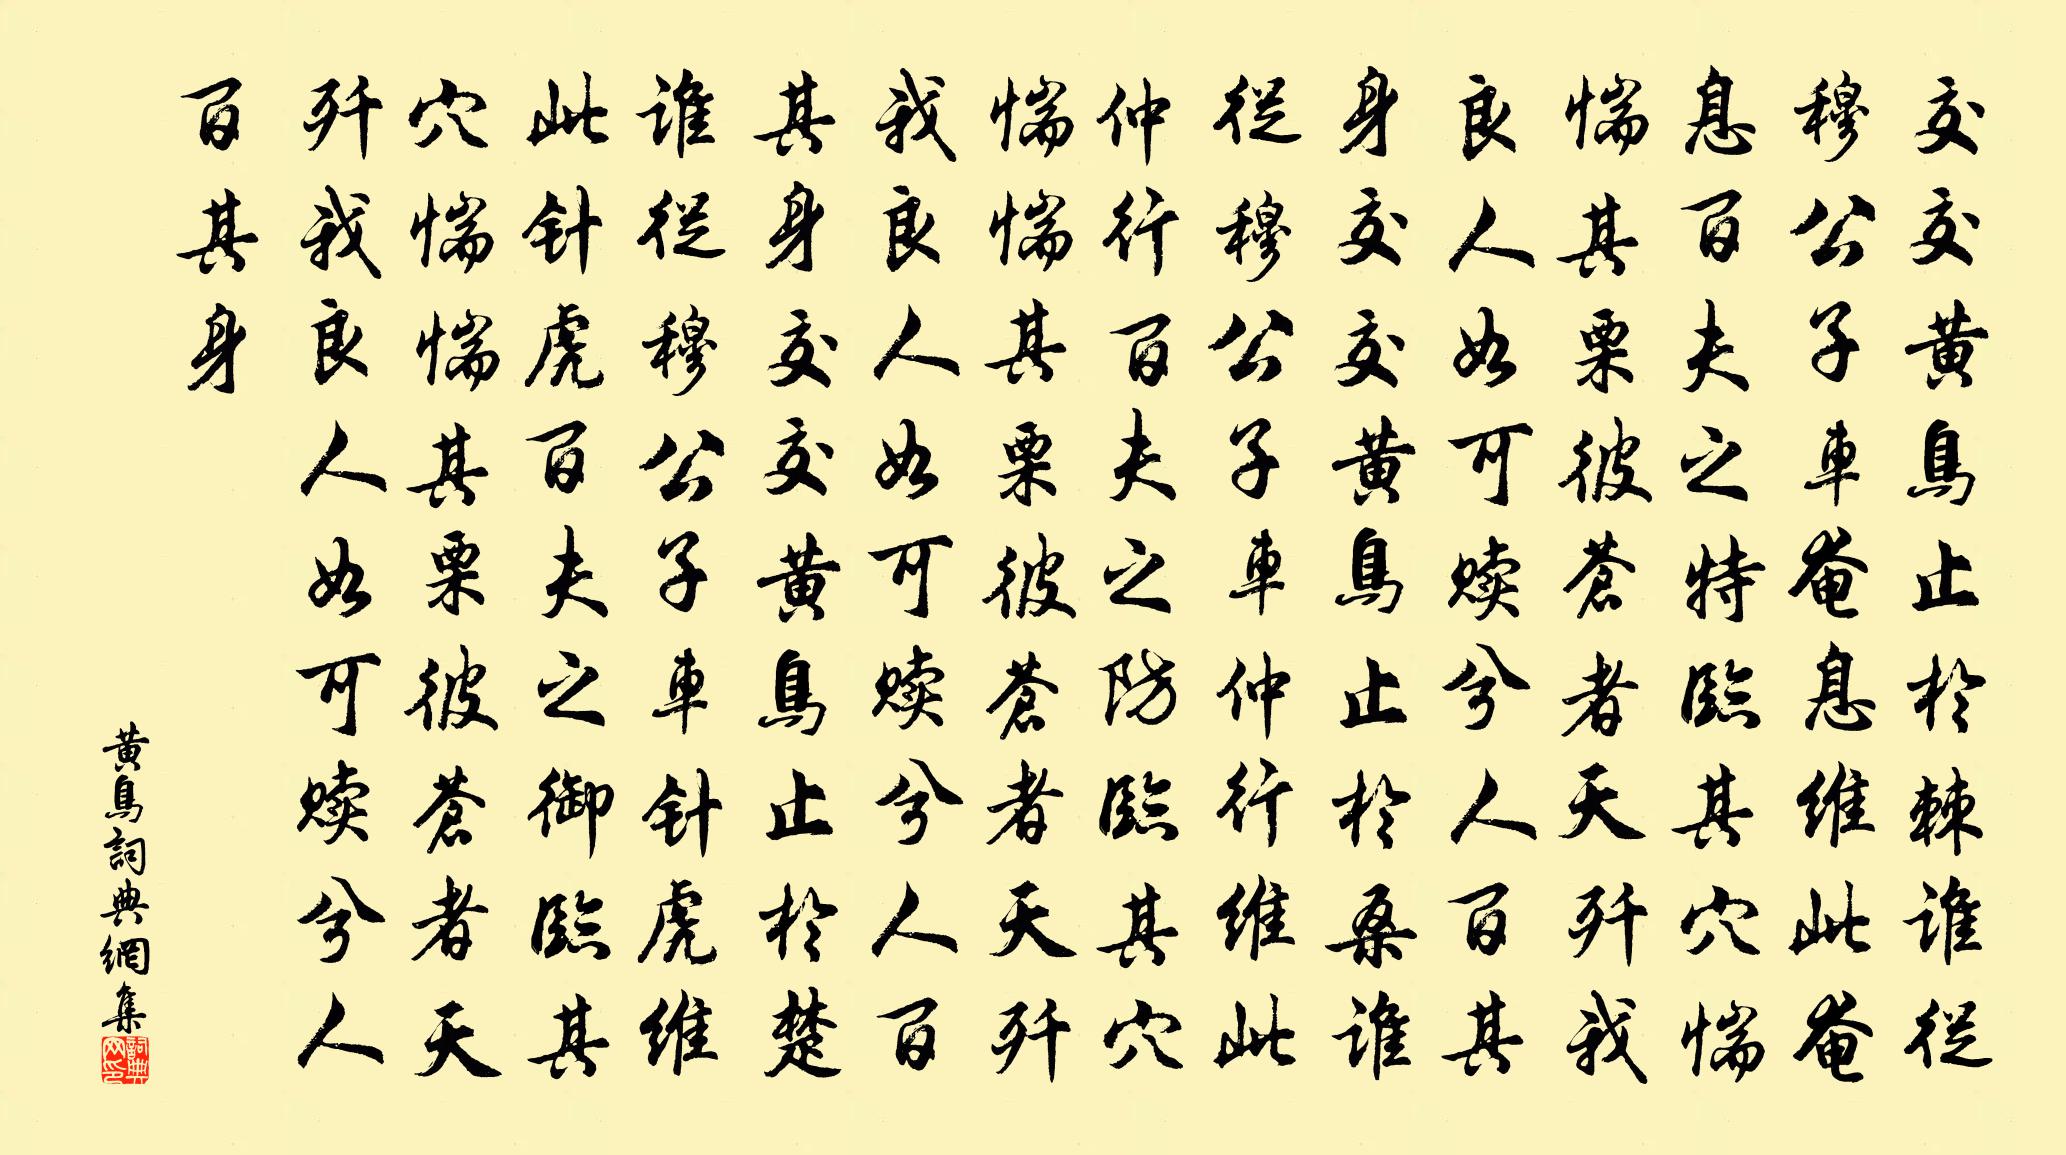 交交黃鳥止於棘誰從
穆公子車奄息維此奄
息百夫之特臨其穴惴
惴其栗彼蒼者天歼我
良人如可赎兮人百其
身交交黃鳥止於桑誰
從穆公子車仲行維此
仲行百夫之防臨其穴
惴惴其栗彼蒼者天歼
我良人如可赎兮人百
其身交交黃鳥止於楚
誰從穆公子車针虎維
此针虎百夫之御臨其
穴惴惴其栗彼蒼者天
歼我良人如可赎兮人
百其身
黃鳥詞典網集
詞典网印